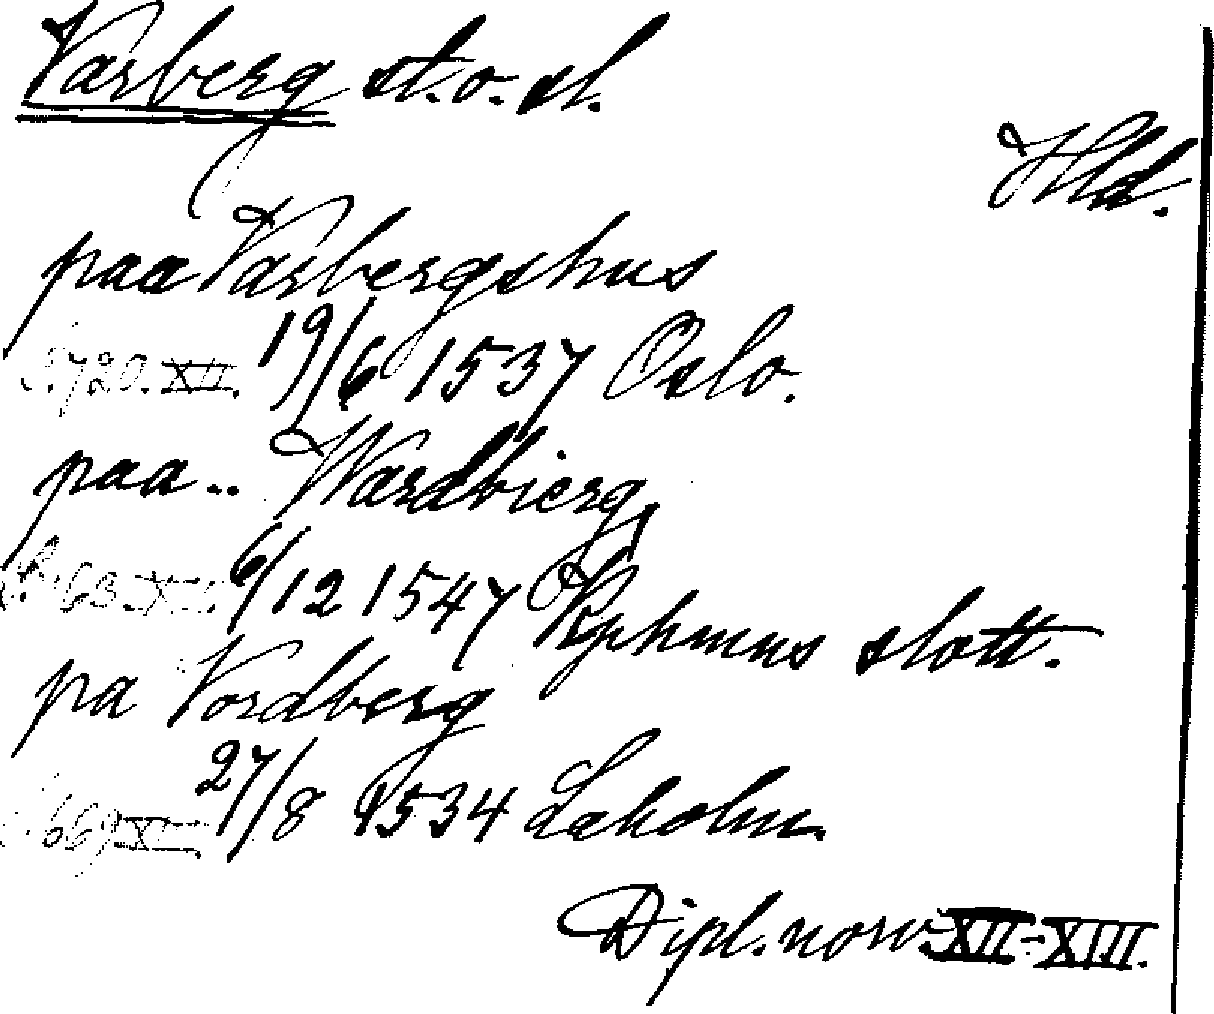 Varberg st. o. sl.
Hld.
paa Varbergshus
S. 720. XII. 19/6 1537 Oslo.
paa .. Wardbierg,
S. 63 XIII. 6/12 1547 Kphmns slott.
pa Vordberg
669 XII 27/8 1534 Laholm.
Dipl. norv. XII-XIII.